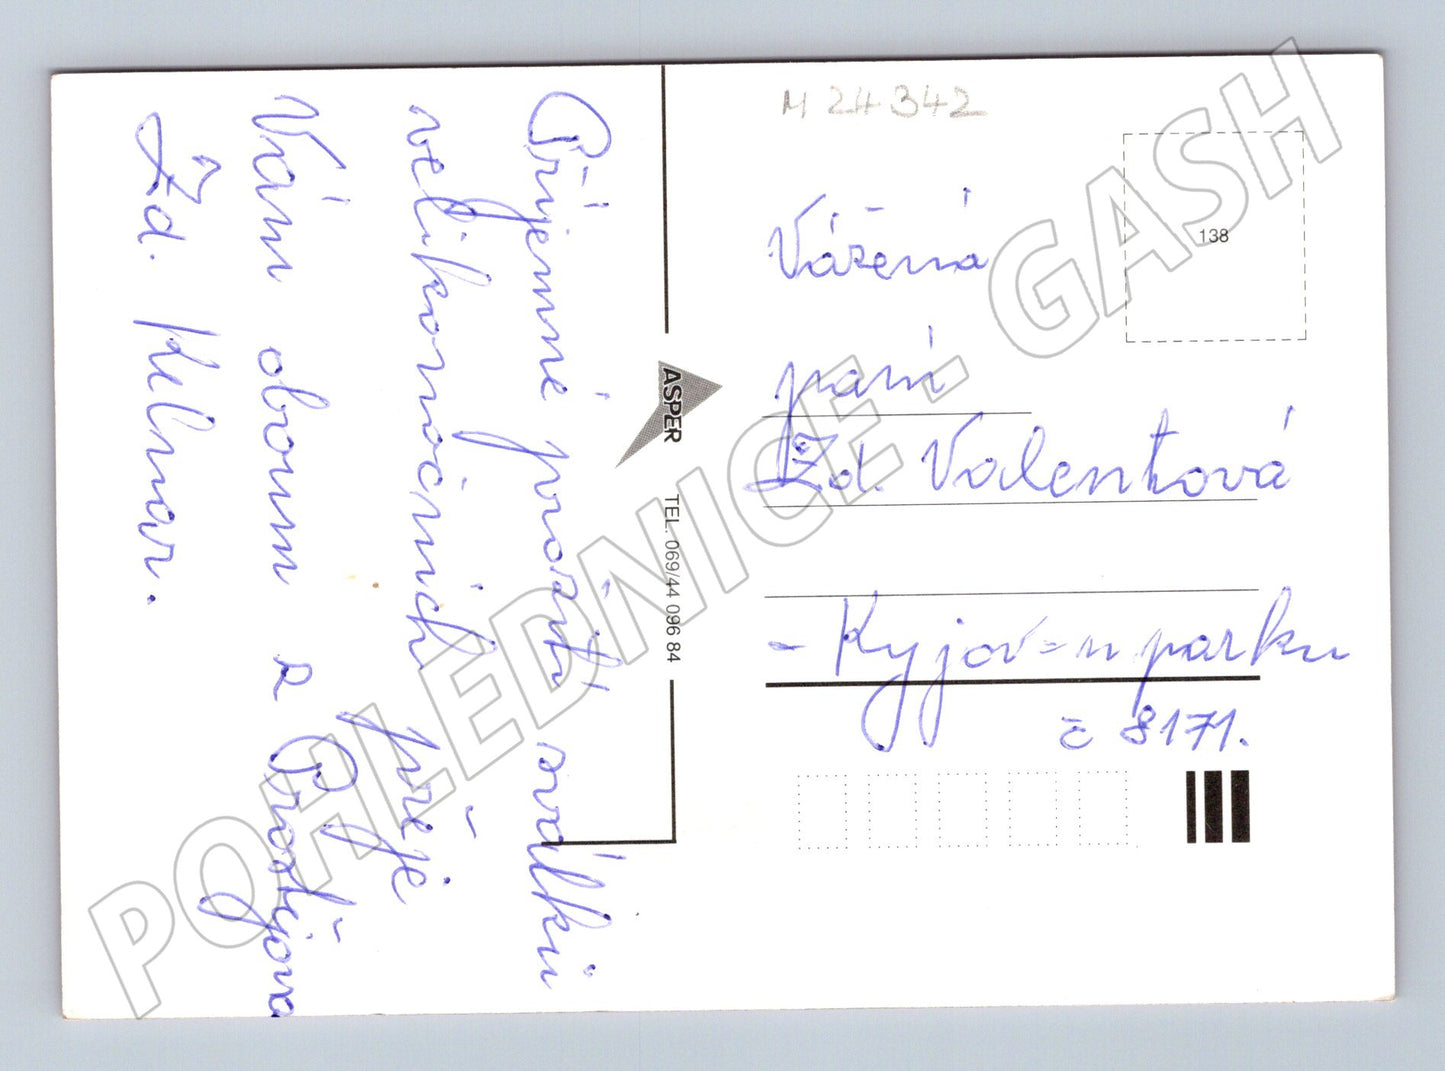 Příjemné prožití svátků
velikonočních přeje
Vám oboum z Prostějova
Zd. Kelnar.
M 24 342
138
Vážená
paní
Zd. Valentová
- Kyjov = u parku
č 8171.
ASPER
TEL. 069/44 096 84
POHLEDNICE - GASH